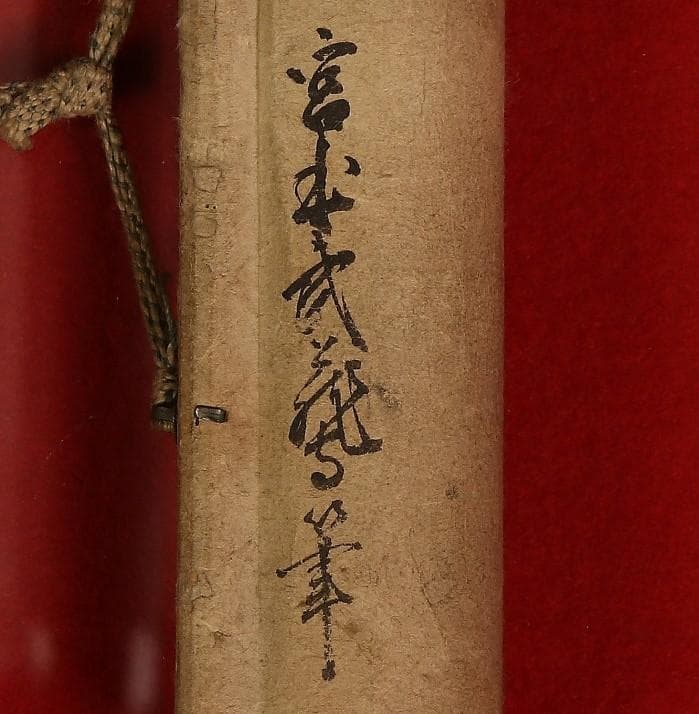 宮本武蔵筆